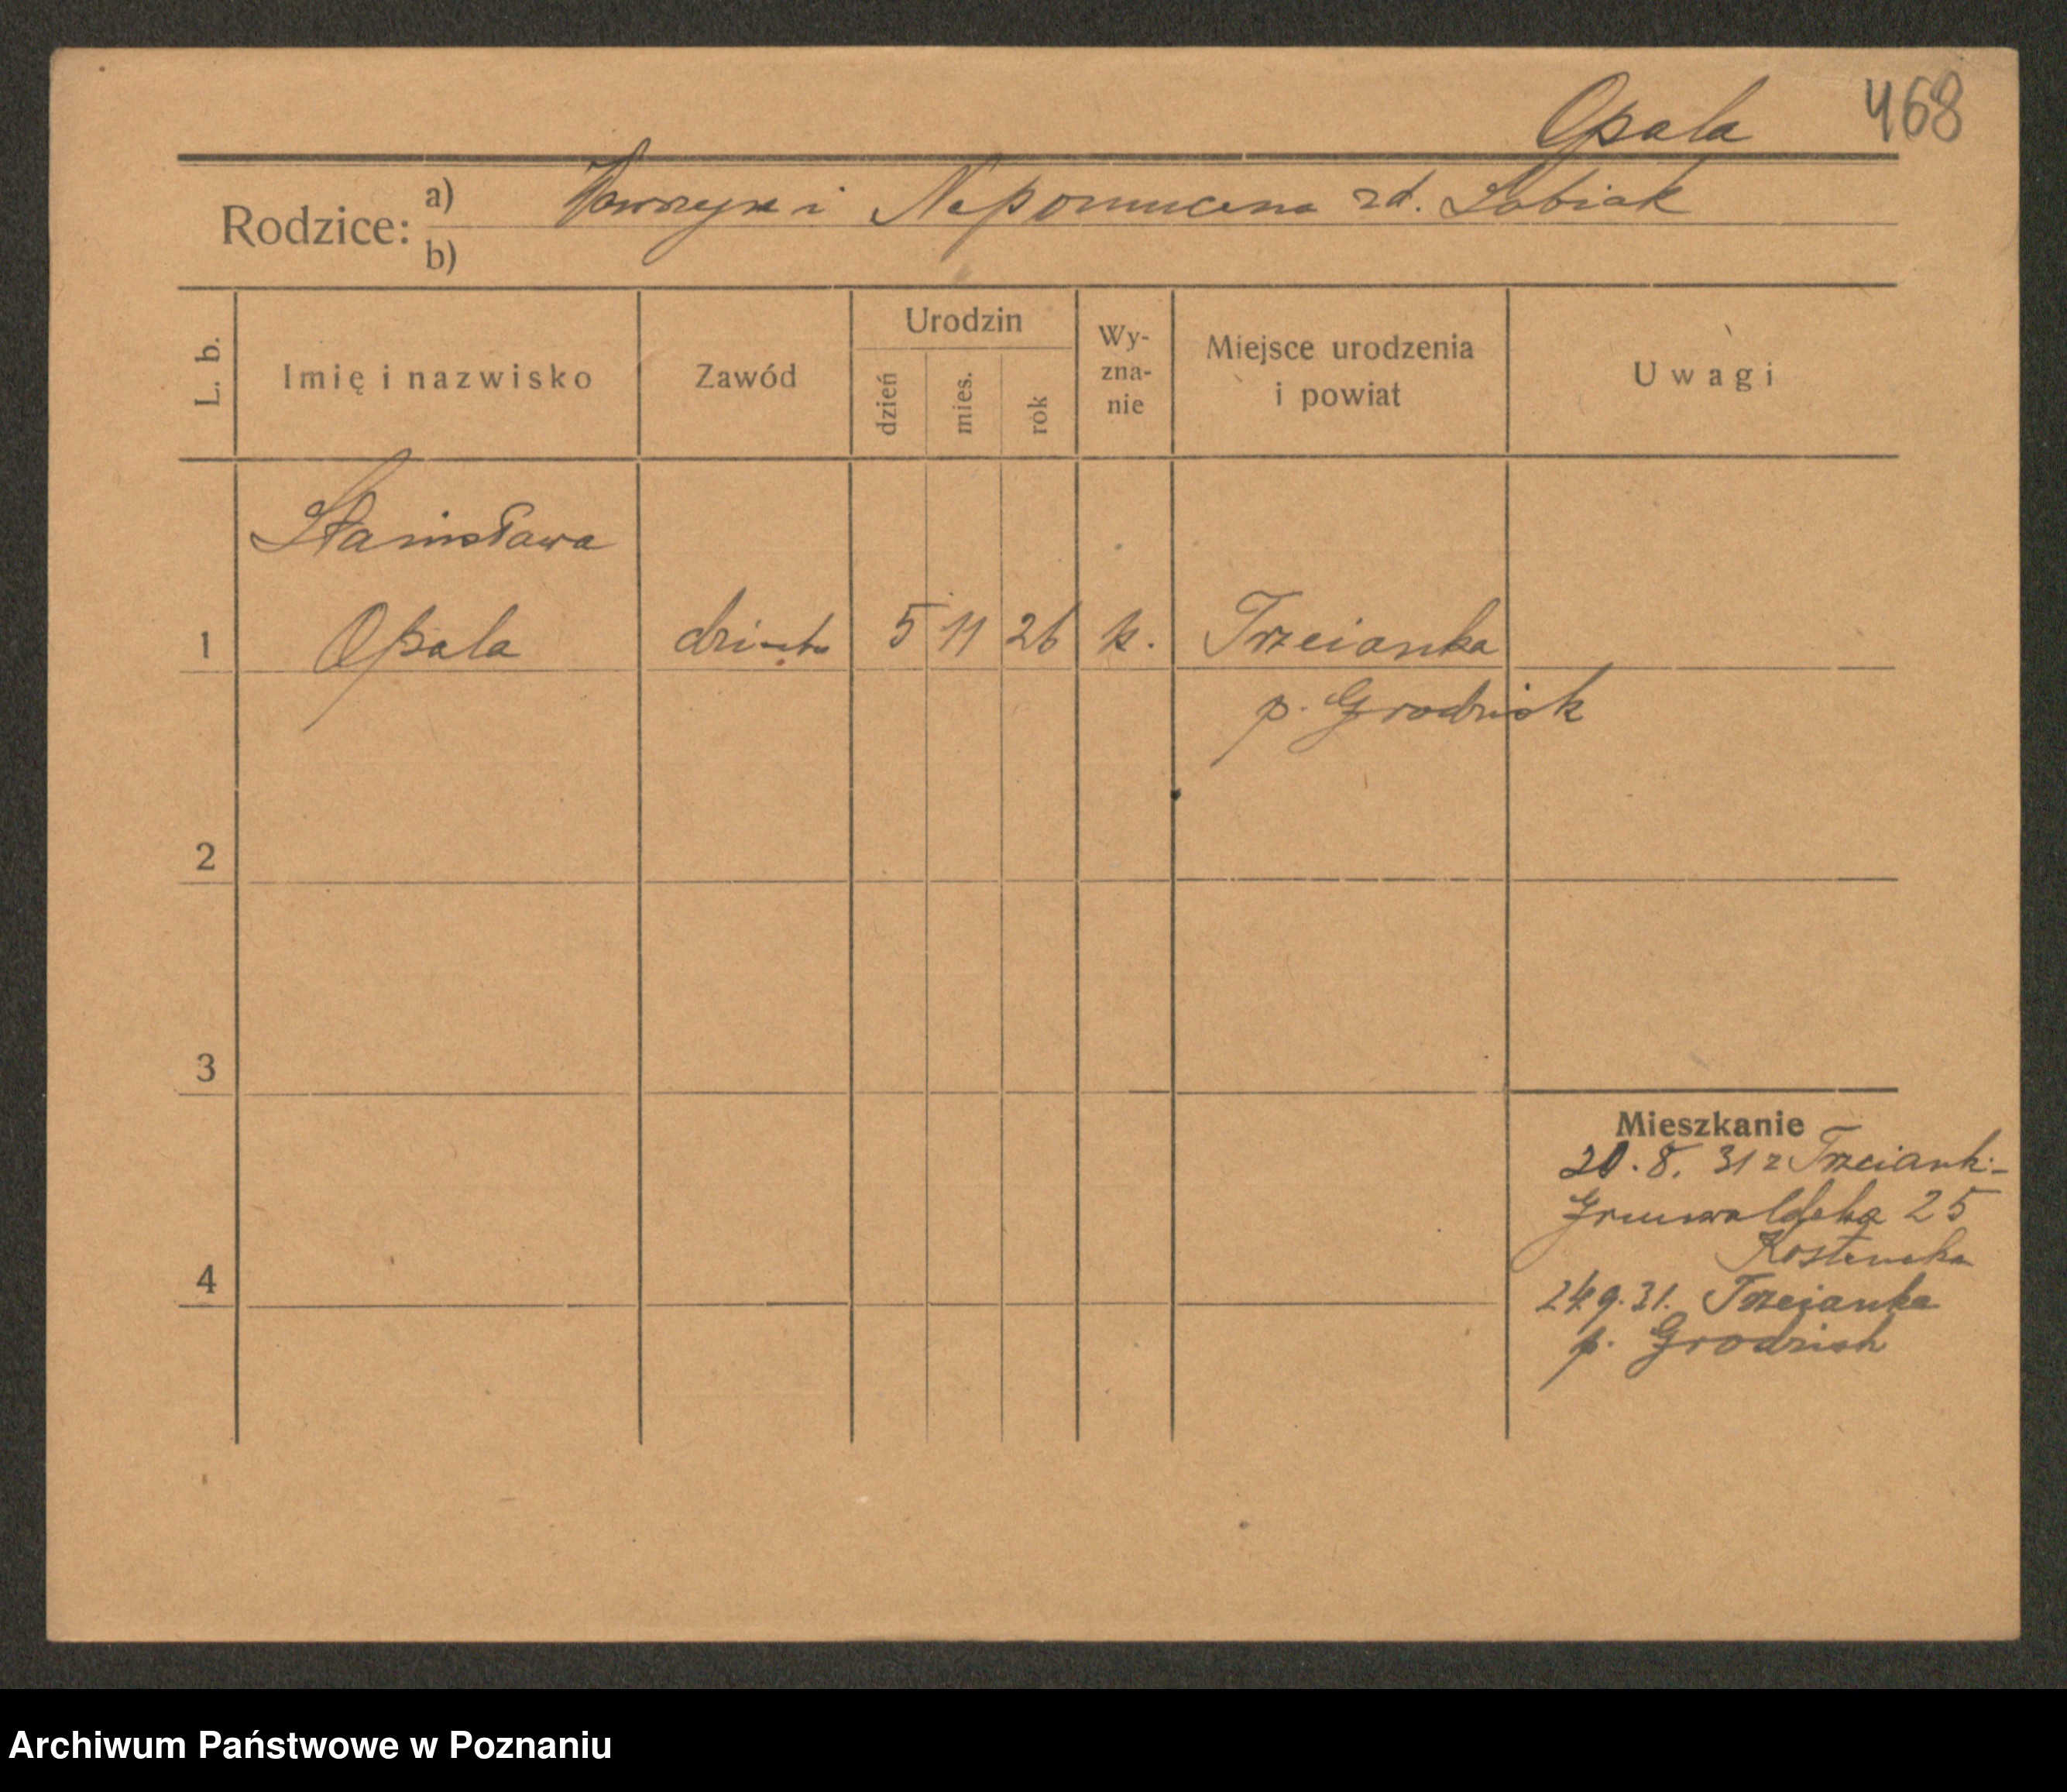 Opala 468
Rodzice: a) Wawrzyn i Nepomucena zd. Łabiak
b)
L. b. Imię i nazwisko Zawód Urodzin dzień mies. rok Wy-zna-nie Miejsce urodzenia i powiat Uwagi
Stanisława
1 Opala dziecko 5 11 26 k. Trzcianka
p. Grodzisk
2
3
Mieszkanie
20. 8. 31 z Trzcianki
Grunwaldzka 25
4
24.9.31. Trzcianka
p. Grodzisk
Archiwum Państwowe w Poznaniu